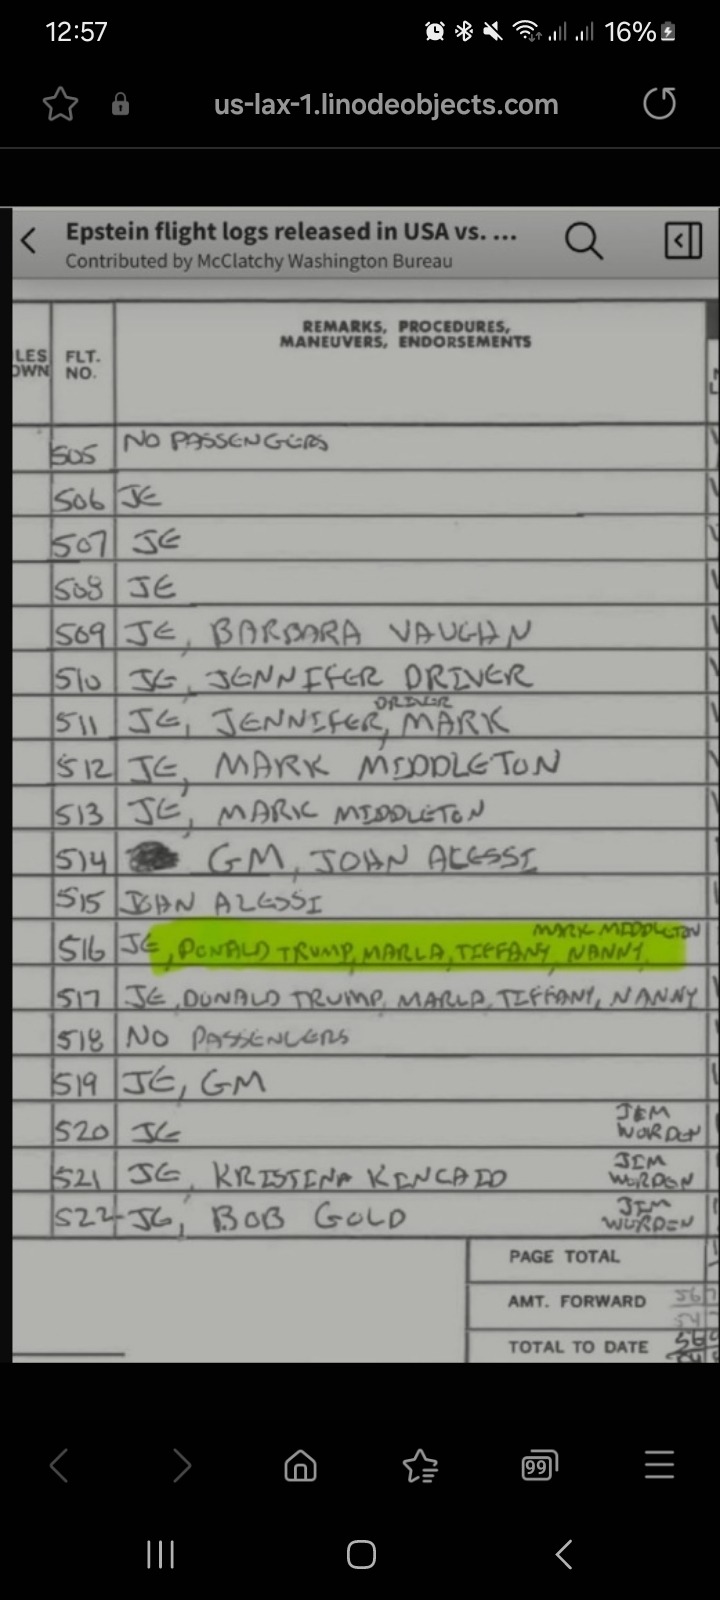 12:57
16%
us-lax-1.linodeobjects.com
Epstein flight logs released in USA vs. ...
Contributed by McClatchy Washington Bureau
LES OWN
FLT. NO.
REMARKS, PROCEDURES,
MANEUVERS, ENDORSEMENTS
505 NO PASSENGERS
506 JE
507 JE
508 JE
509 JE, BARBARA VAUGHN
510 JE, JENNIFER DRIVER
DRIVER
511 JE, JENNIFER, MARK
512 JE, MARK MIDDLETON
513 JE, MARK MIDDLETON
514 GM, JOHN ALESSI
515 JOHN ALESSI
MARK MIDDLETON
516 JE, DONALD TRUMP, MARLA, TIFFANY, NANNY
517 JE, DONALD TRUMP, MARLA, TIFFANY, NANNY
518 NO PASSENGERS
519 JE, GM
520 JE JIM WORDEN
521 JE, KRISTINA KINCAID JIM WORDEN
522 JE, BOB GOLD JIM WORDEN
PAGE TOTAL
AMT. FORWARD
TOTAL TO DATE
99